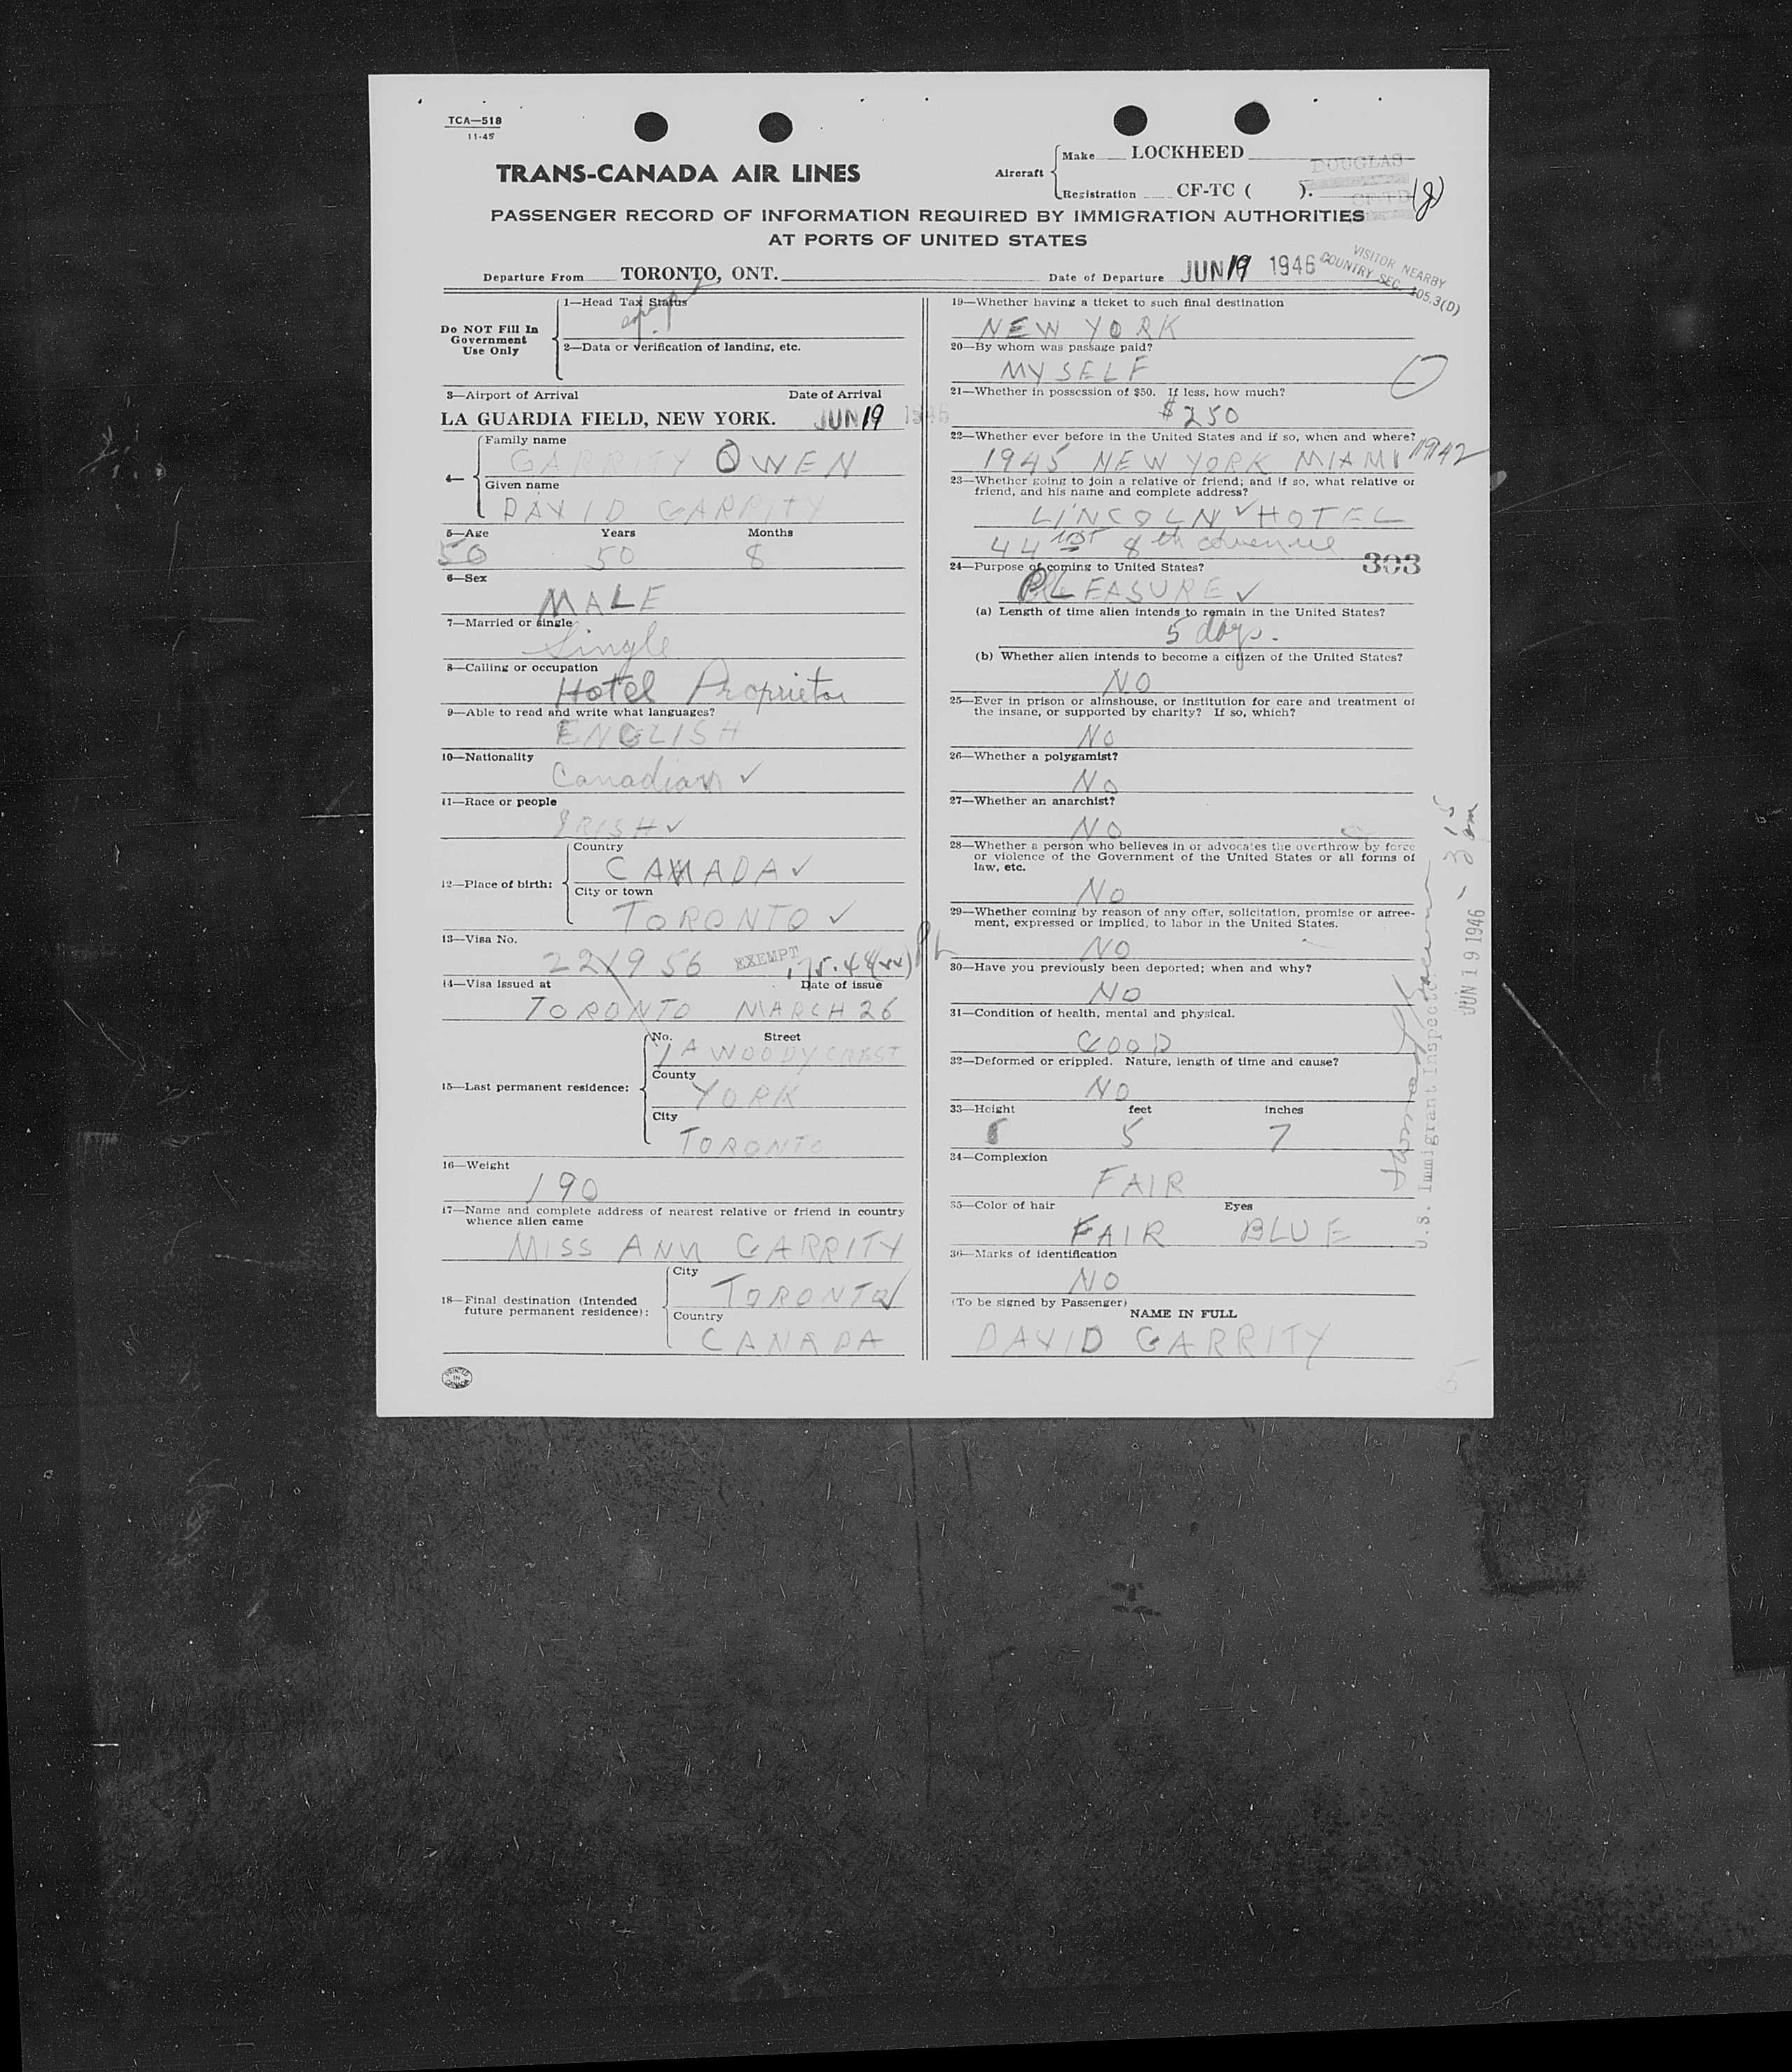 TCA—518
11-45
TRANS-CANADA AIR LINES
Aircraft
Make LOCKHEED
DOUGLAS
Registration CF-TC ( ).
CF-TD (J)
PASSENGER RECORD OF INFORMATION REQUIRED BY IMMIGRATION AUTHORITIES
AT PORTS OF UNITED STATES
VISITOR NEARBY
COUNTRY SEC. 105.3(D)
Departure From TORONTO, ONT.
Date of Departure JUN 19 1946
Do NOT Fill In
Government
Use Only
1—Head Tax Status
2—Data or verification of landing, etc.
3—Airport of Arrival Date of Arrival
LA GUARDIA FIELD, NEW YORK. JUN 19 1946
4—
Family name
GARRITY OWEN
Given name
DAVID GARRITY
5—Age Years Months
50 50 8
6—Sex
MALE
7—Married or single
Single
8—Calling or occupation
Hotel Proprietor
9—Able to read and write what languages?
ENGLISH
10—Nationality
Canadian ✓
11—Race or people
IRISH ✓
12—Place of birth:
Country
CANADA ✓
City or town
TORONTO ✓
13—Visa No.
221956 EXEMPT
14—Visa issued at Date of issue
TORONTO MARCH 26
15—Last permanent residence:
No. Street
1A WOODYCREST
County
YORK
City
TORONTO
16—Weight
190
17—Name and complete address of nearest relative or friend in country
whence alien came
MISS ANN GARRITY
18—Final destination (Intended
future permanent residence):
City
TORONTO
Country
CANADA
PRINTED
IN
CANADA
19—Whether having a ticket to such final destination
NEW YORK
20—By whom was passage paid?
MYSELF
21—Whether in possession of $50. If less, how much?
$250
22—Whether ever before in the United States and if so, when and where?
1945 NEW YORK MIAMI 1942
23—Whether going to join a relative or friend; and if so, what relative or
friend, and his name and complete address?
LINCOLN ✓ HOTEL
44 8th avenue
303
24—Purpose of coming to United States?
PLEASURE ✓
(a) Length of time alien intends to remain in the United States?
5 days.
(b) Whether alien intends to become a citizen of the United States?
NO
25—Ever in prison or almshouse, or institution for care and treatment of
the insane, or supported by charity? If so, which?
NO
26—Whether a polygamist?
NO
27—Whether an anarchist?
NO
28—Whether a person who believes in or advocates the overthrow by force
or violence of the Government of the United States or all forms of
law, etc.
NO
29—Whether coming by reason of any offer, solicitation, promise or agree-
ment, expressed or implied, to labor in the United States.
NO
30—Have you previously been deported; when and why?
NO
31—Condition of health, mental and physical.
GOOD
32—Deformed or crippled. Nature, length of time and cause?
NO
33—Height feet inches
5 7
34—Complexion
FAIR
35—Color of hair Eyes
FAIR BLUE
36—Marks of identification
NO
(To be signed by Passenger)
NAME IN FULL
DAVID GARRITY
U.S. Immigrant Inspector
JUN 19 1946